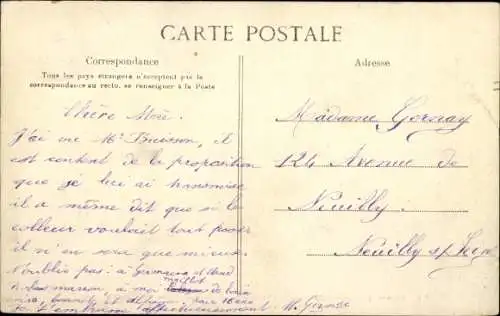 CARTE POSTALE
Correspondance
Tous les pays étrangers n'acceptent pas la
correspondance au recto, se renseigner à la Poste
Adresse
Chère Mère
J'ai vu Mr Buisson, il
est content de la proposition
que je lui ai transmise
il a même dit que si le
colleur voulait tout poser
il n'en sera que mieux.
N'oublie pas à Germaine et
maillot
maison, à moi de bain
et
affectueusement
Madame Gornay
124 Avenue de
Neuilly
Neuilly s/ Seine